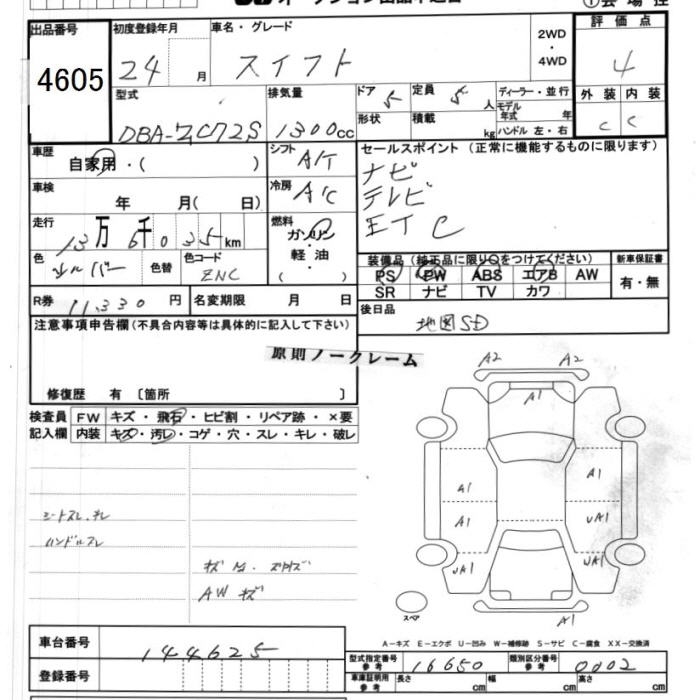 出品番号 初度登録年月 車名・グレード 2WD ・ 4WD 評価点
4605 24 月 スイフト 4
型式 排気量 ドア 5 定員 5 人 ディーラー・並行 外装 内装
DBA-ZC72S 1300cc 形状 積載 kg モデル年式 年 ハンドル 左・右 C C
車歴 自家用・( ) シフト A/T セールスポイント (正常に機能するものに限ります)
車検 年 月( 日) 冷房 A/C ナビ
テレビ
走行 13万 6千 0 3 5 km 燃料 ガソリン・軽油・( ) ETC
色 シルバー 色替 色コード ZNC
装備品 (純正品に限り○をつけてください) 新車保証書
PS PW ABS エアB AW 有・無
SR ナビ TV カワ
R券 11,330 円 名変期限 月 日 後日品 地図SD
注意事項申告欄 (不具合内容等は具体的に記入して下さい)
原則ノークレーム
修復歴 有 〔箇所 〕
検査員 FW キズ・飛石・ヒビ割・リペア跡・×要
記入欄 内装 キズ・汚レ・コゲ・穴・スレ・キレ・破レ
A2 A2
A1
A1 A1
A1 UA1
UA1 UA1
A1
シートスレ.
ハンドルスレ
AW キズ
スペア
A-キズ E-エクボ U-凹み W-補修跡 S-サビ C-腐食 XX-交換済
車台番号 144625
型式指定番号 参考 16650 類別区分番号 参考 0002
登録番号 車庫証明用 参考 長さ cm 幅 cm 高さ cm